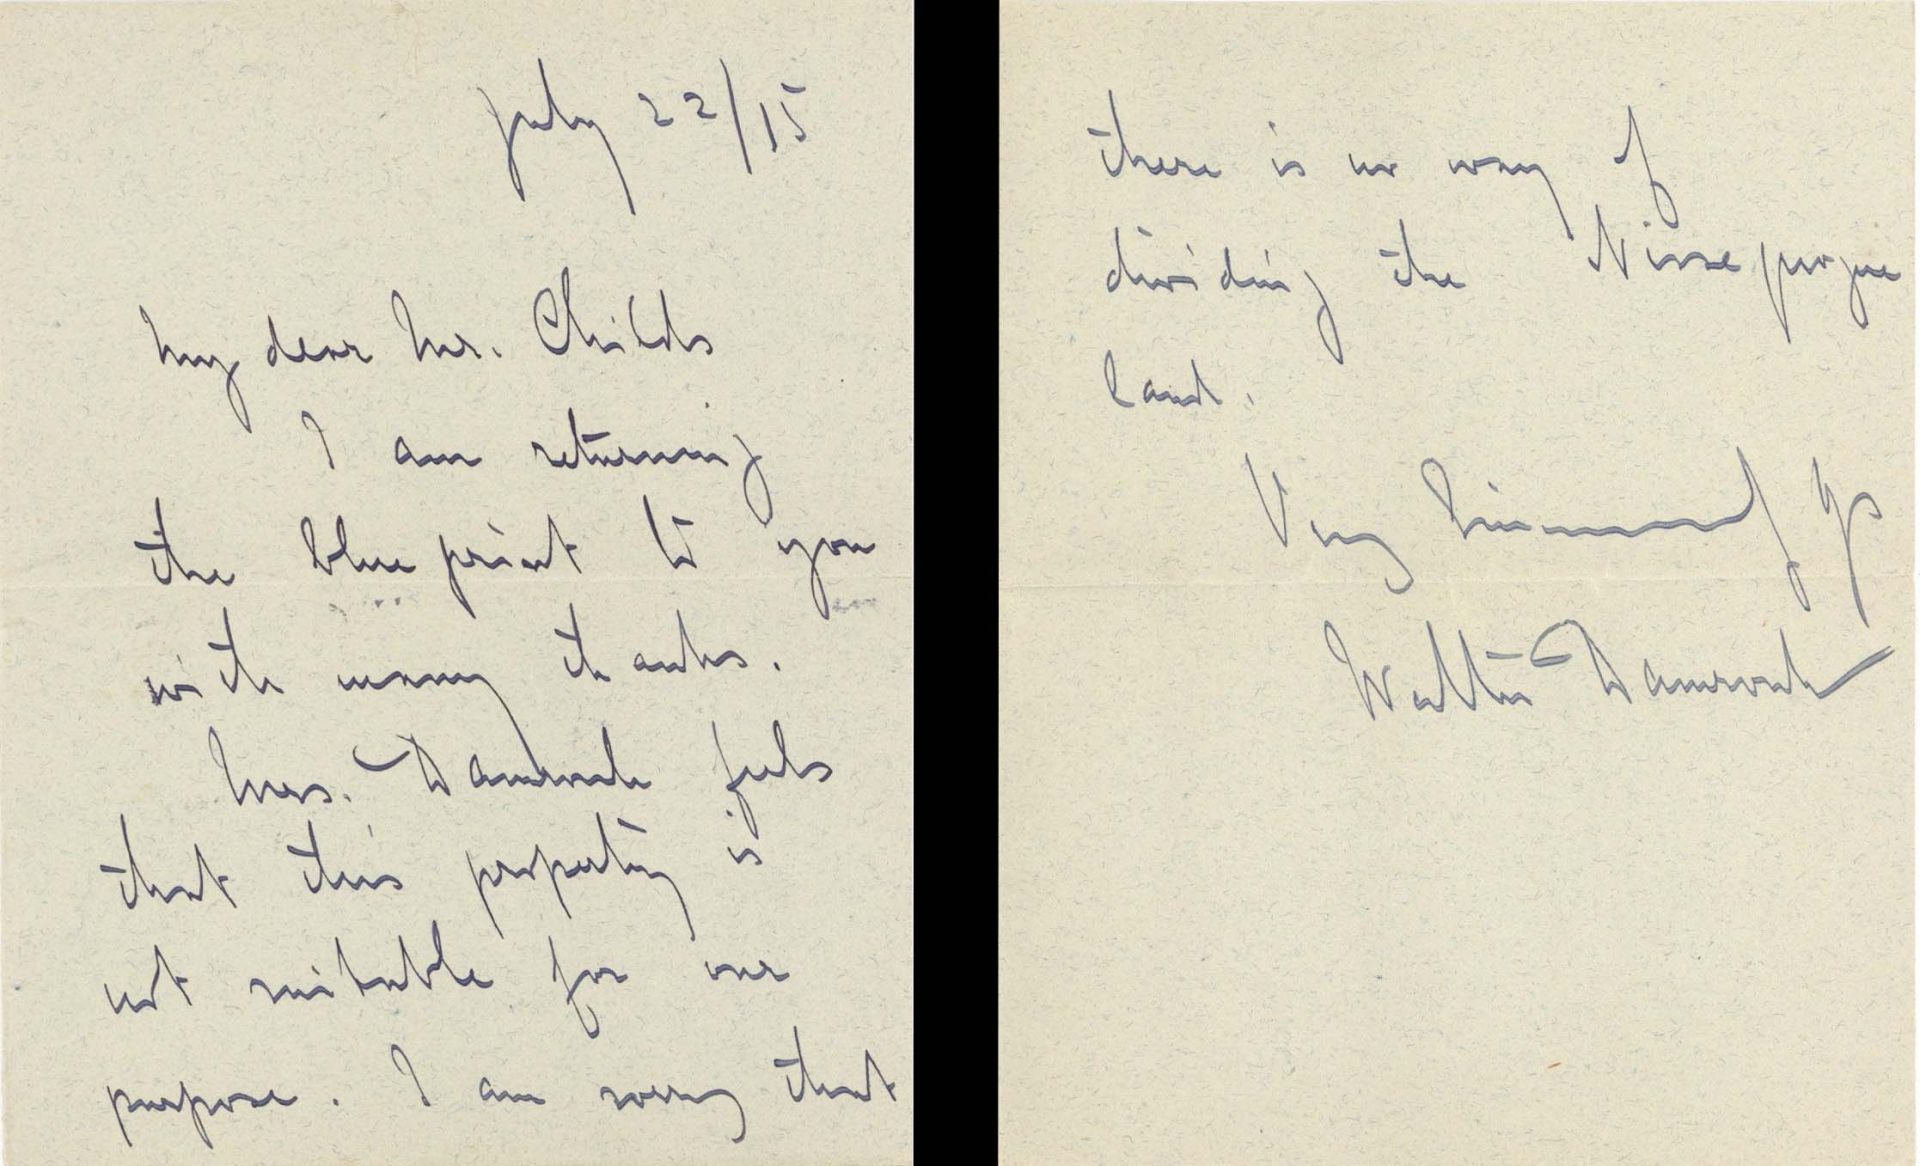 July 22/15
My dear Mr. Childs
I am returning
the blue print to you
with many thanks.
Mrs. Damrosch feels
that this property is
not suitable for our
purpose. I am sorry that
there is no way of
dividing the
land.
Very Sincerely Yrs
Walter Damrosch